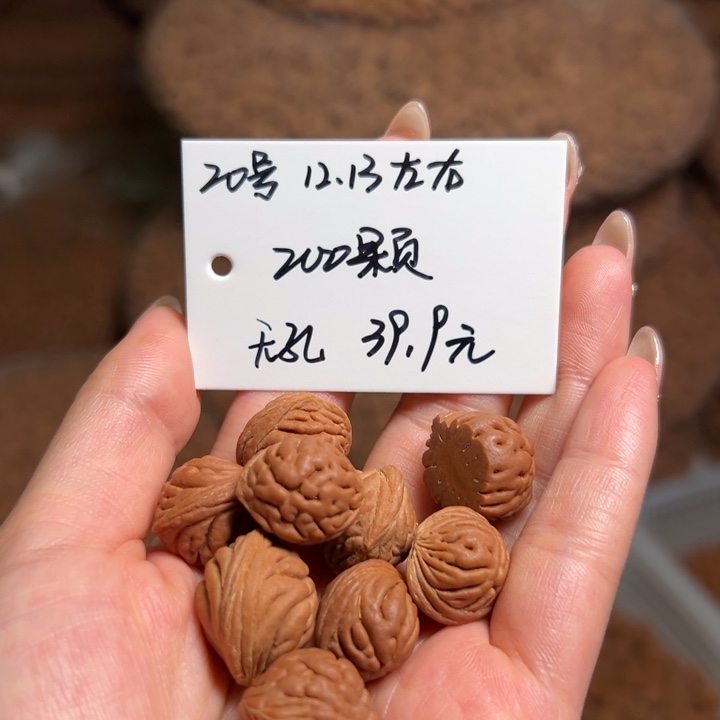 20号 12.13左右
200颗
无孔 39.9元